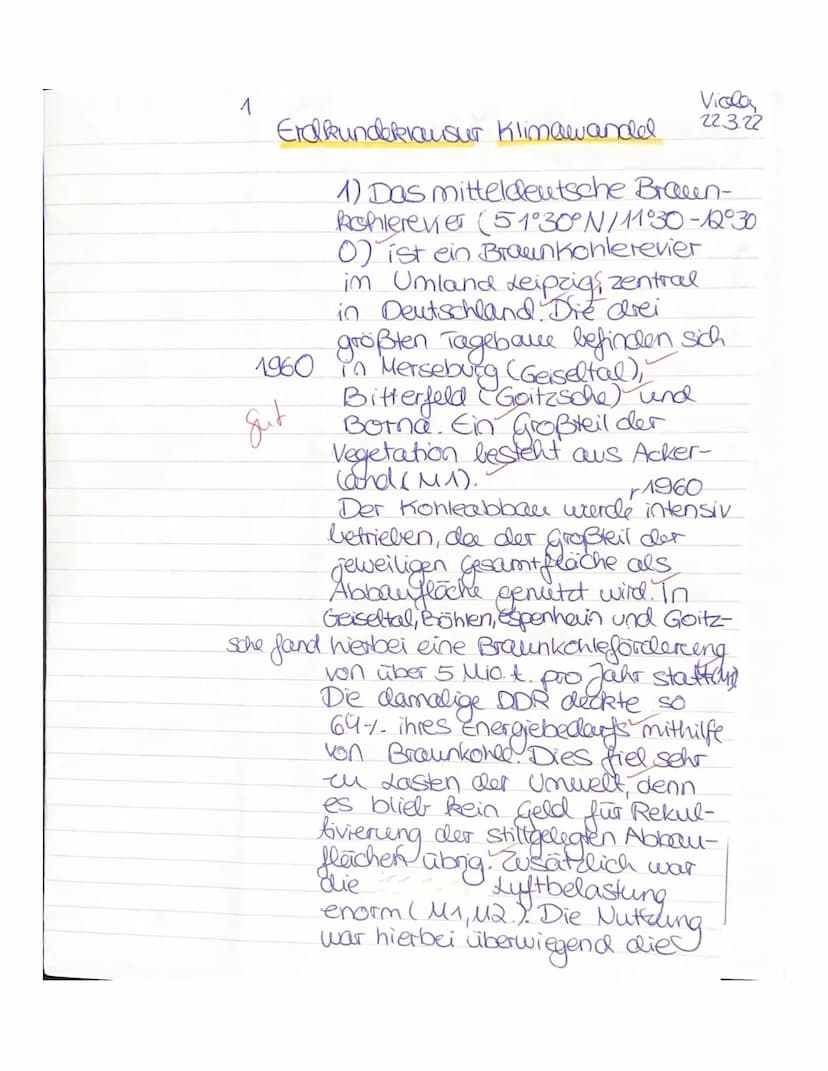 1
Viola,
22.3.22
Erdkundeklausur Klimawandel
1) Das mitteldeutsche Braun-
kohlerevier (51°30°N/11°30-12°30
O) ist ein Braunkohlerevier
im Umland Leipzigs, zentral
in Deutschland. Die drei
größten Tagebaue befinden sich
1960 in Merseburg (Geiseltal),
Bitterfeld (Goitzsche) und
gut
Borna. Ein Großteil der
Vegetation besteht aus Acker-
land (M1).
1960
Der Kohleabbau wurde intensiv
betrieben, da der Großteil der
jeweiligen Gesamtfläche als
Abbaufläche genutzt wird. In
Geiseltal, Böhlen, Espenhain und Goitz-
sche fand hierbei eine Braunkohleförderung
von über 5 Mio. t. pro Jahr statt (M1)
Die damalige DDR deckte so
64% ihres Energiebedarfs mithilfe
von Braunkohle. Dies fiel sehr
zu Lasten der Umwelt, denn
es blieb kein Geld für Rekul-
tivierung der stillgelegten Abbau-
flächen übrig. Zusätzlich war
die Luftbelastung
enorm (M1, M2.). Die Nutzung
war hierbei überwiegend die